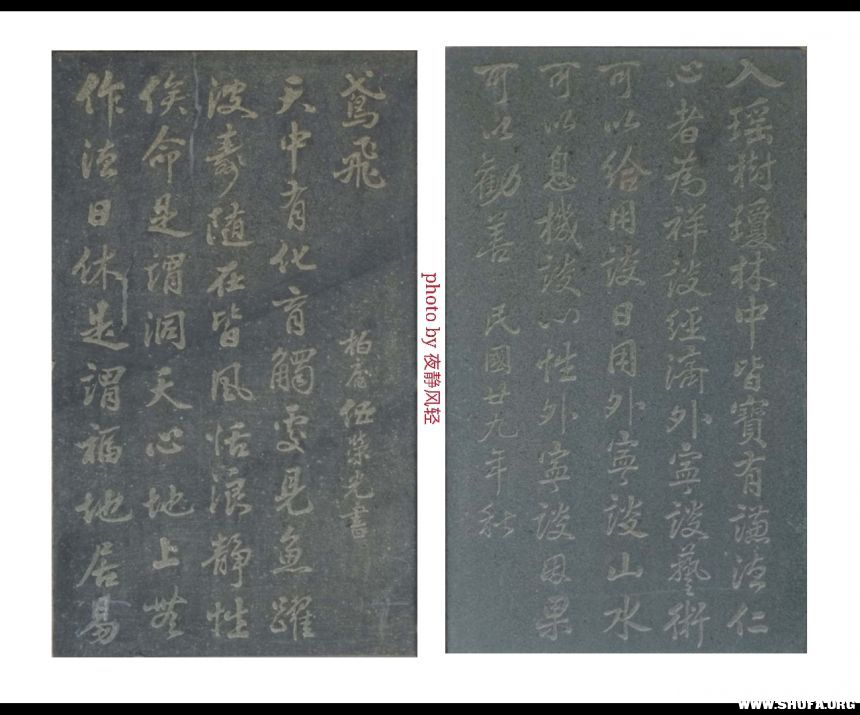 作德日休是謂福地居易
俟命是謂洞天心地上無
波濤隨在皆風恬浪靜性
天中有化育觸處見魚躍
鳶飛
柏伍榮光書
入瑶樹瓊林中皆寶有謙德仁
心者為祥談經濟外寧談藝術
可以給用談日用外寧談山水
可以息機談心性外寧談因果
可以勸善 民國廿九年秋
photo by 夜静风轻
WWW.SHUFA.ORG